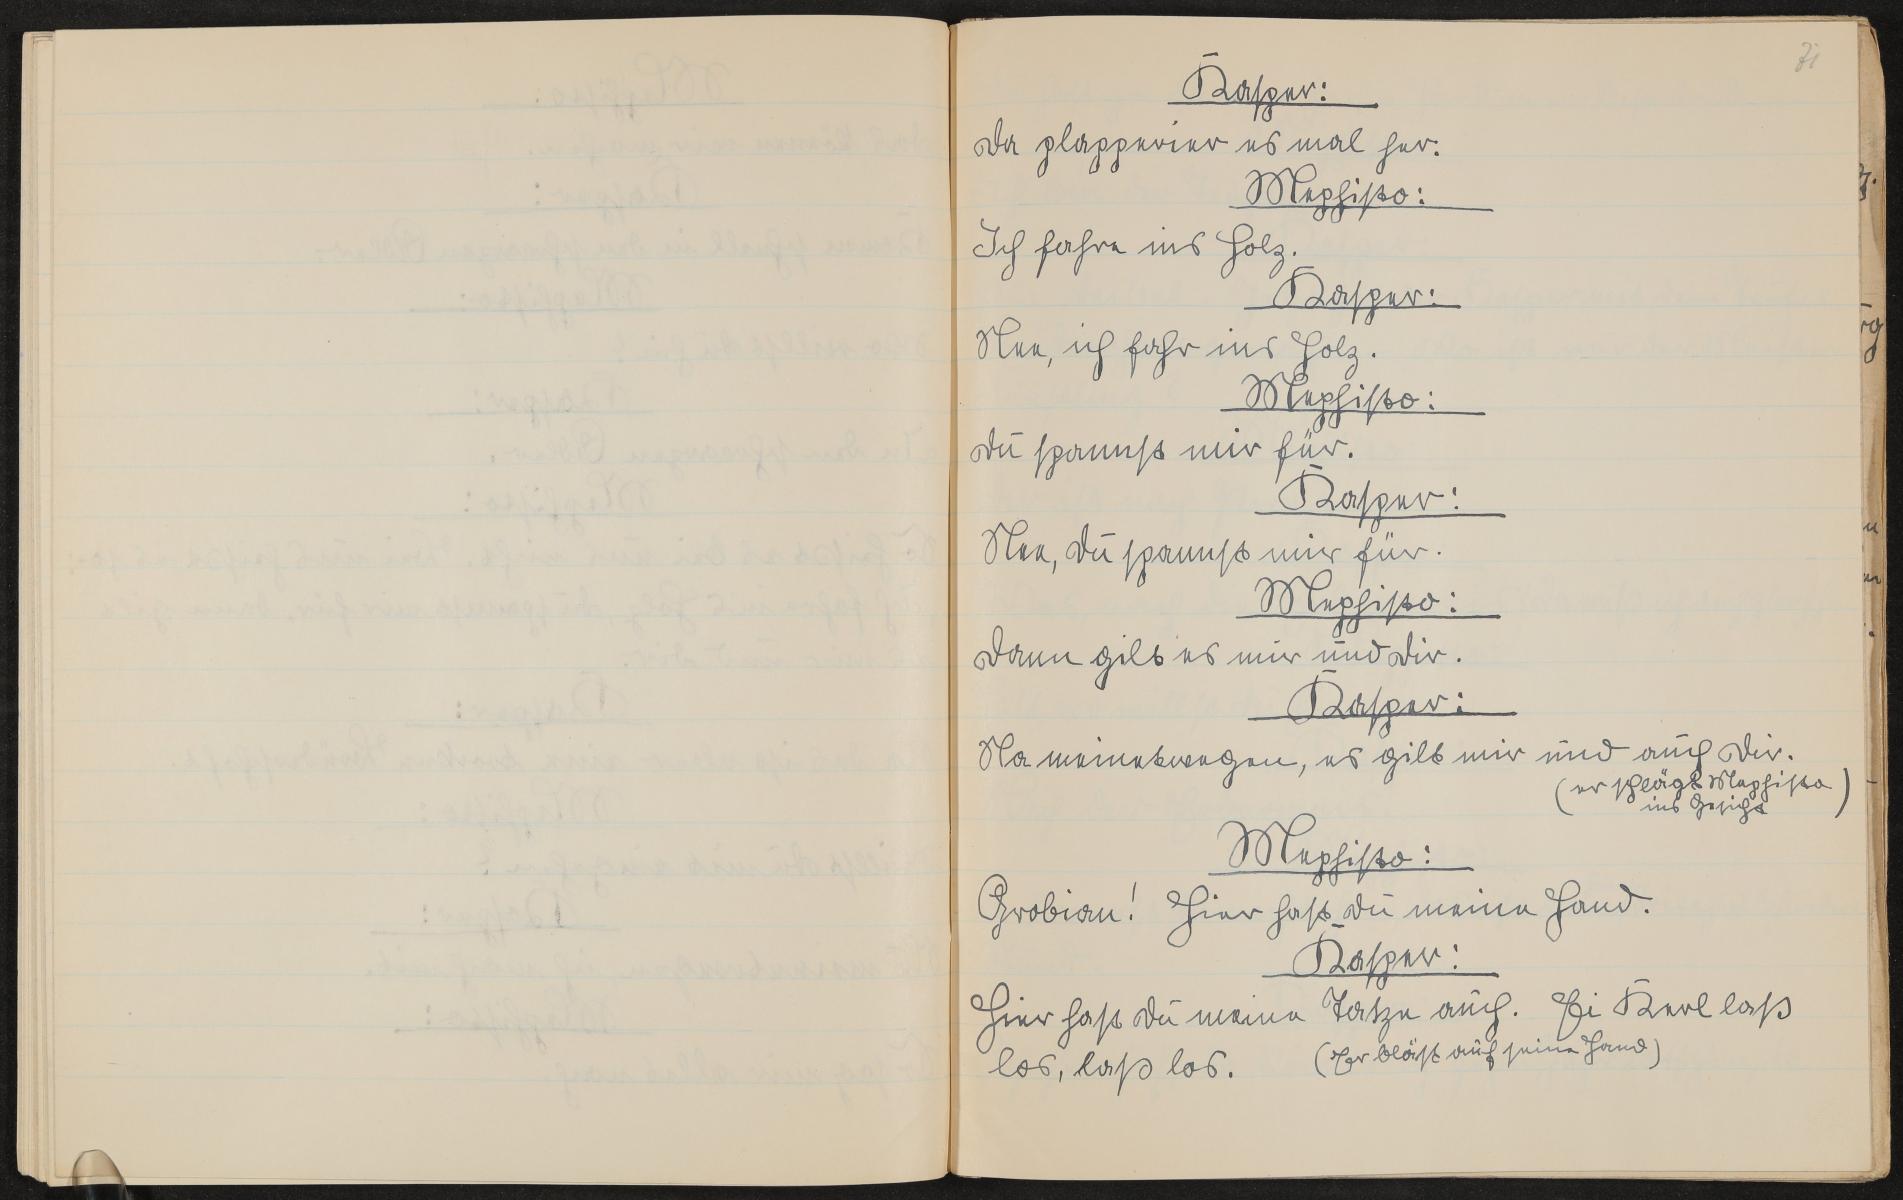 Kasper:
Da plapperier es mal her.
Mephisto:
Ich fahre ins Holz.
Kasper:
Nee, ich fahr ins Holz.
Mephisto:
Du spannst mir für.
Kasper:
Nee, Du spannst mir für.
Mephisto:
Dann gilt es mir und Dir.
Kasper:
Na meinetwegen, es gilt mir und auch Dir.
(er schlägt Mephisto
ins Gesicht)
Mephisto:
Grobian! Hier hast Du meine Hand.
Kasper:
Hier hast Du meine Tatze auch. Ei Kerl laß
los, laß los. (Er bläst auf seine Hand)